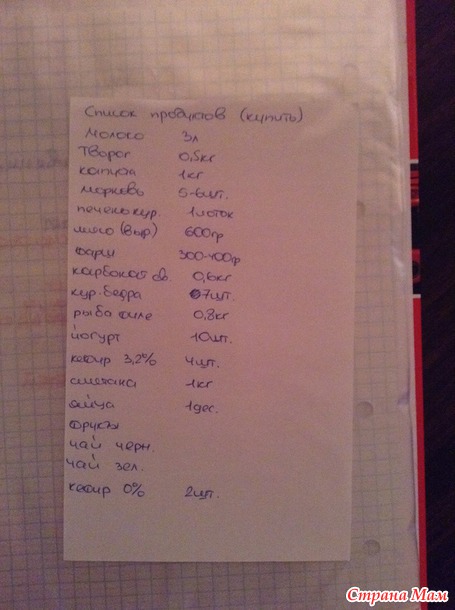 Список продуктов (купить)
молоко 3л
творог 0,5кг
капуста 1кг
морковь 5-6шт.
печень кур. 1лоток
мясо (выр) 600гр
фарш 300-400гр
карбонат св. 0,6кг
кур. бедра 7шт.
рыба филе 0,8кг
йогурт 10шт.
кефир 3,2% 4шт.
сметана 1кг
яйца 1дес.
фрукты
чай черн.
чай зел.
кефир 0% 2шт.
Страна Мам